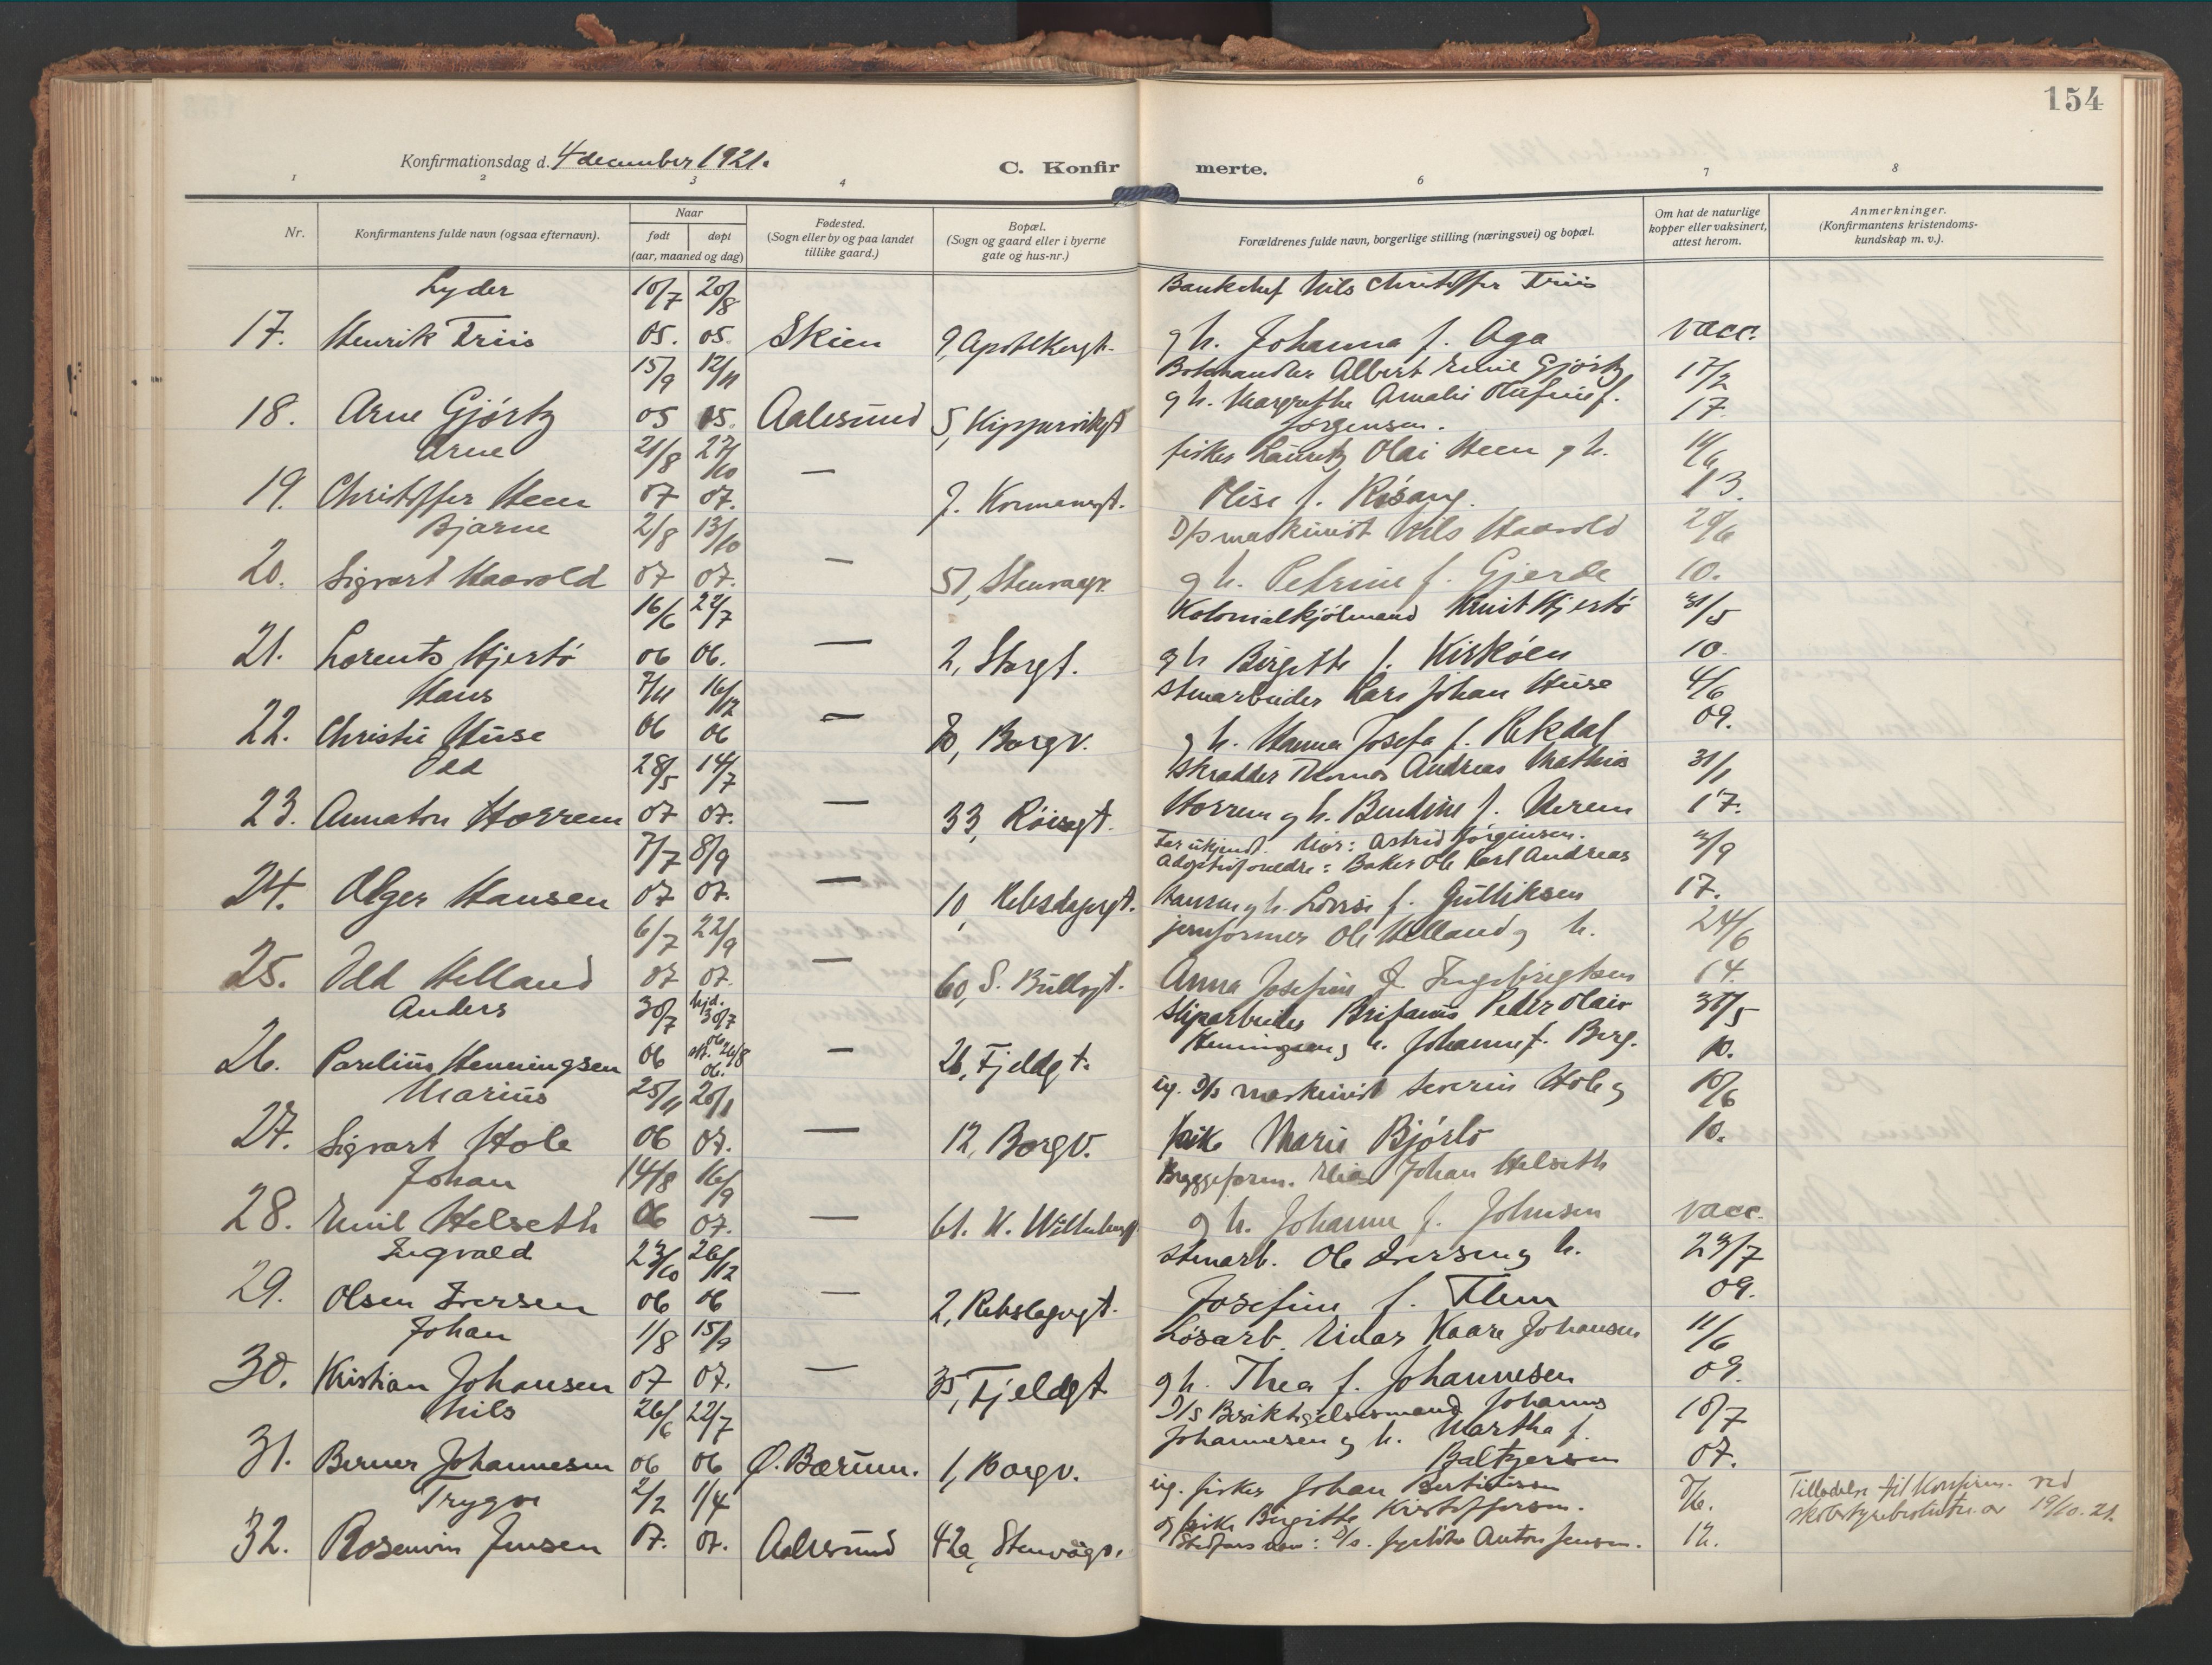 154
Konfirmationsdag d. 4 december 1921.
C. Konfirmerte.
1 2 3 4 6 7 8
Nr.
Konfirmantens fulde navn (ogsaa efternavn).
Naar
født døpt
(aar, maaned og dag)
Fødested.
(Sogn eller by og paa landet
tillike gaard.)
Bopæl.
(Sogn og gaard eller i byerne
gate og hus-nr.)
Forældrenes fulde navn, borgerlige stilling (næringsvei) og bopæl.
Om hat de naturlige
kopper eller vaksinert,
attest herom.
Anmerkninger.
(Konfirmantens kristendoms-
kundskap m. v.).
Lyder 10/7 20/8 Nils Christoffer Friis
17. Henrik Friis 05. 05. Skien 9, g h. Johanna f. Aga vacc.
15/9 12/11 Bokhandler Albert Emil Gjørtz 17/2
18. Arne Gjørtz 05 05. Aalesund 5, g h. Margrethe Amalie f. 17.
Jørgensen.
Arne 21/8 27/10 fisker Lauritz Olai Heen g h. 14/6
19. Christoffer Heen 07 07. — 7. Olise f. 13.
Bjarne 2/8 13/10 D/s maskinist Nils Haavold 29/6
20. Sigvart Haavold 07 07. — 51, Stenvaagv. g h. Petrine f. Gjerde 10.
16/6 22/7 Knut Hjertø 31/5
21. Lorents Hjertø 06 06. — 2, Storgt. g h Birgitte f. Kirkøen 10.
Hans 7/11 16/12 Stenarbeider Lars Johan Huse 4/6
22. Christie Huse 06 06 — 10, Borgv. g h. Hanna Josefa f. Rekdal 09.
Odd 28/5 14/7 Skrædder Thomas Andreas Mathias 31/1
23. Annaton Horrem 07 07. — 33, Røisegt. Horrem g h. Bendine f. Harem 17.
7/7 8/9 Far ukjendt. Mor: Astrid Jørgensen.
Adoptivforeldre: Baker Ole Karl Andreas /9
24. Olger Hansen 07 07. — 10, Rebslagergt. Hansen g h. Lovise f. Gulliksen 17.
6/7 22/9 jernformer Ole Helland g h. 24/6
25. Odd Helland 07 07. — 60, S. Bullsgt. Anna Josefine f. Ingebrigtsen 14.
Anders 30/7 hjd. 30/7 Sliparbeider Peder Olais 31/5
26. Parelius Henningsen 06 06. 26/8 06. — 26, Fjeldgt. Henningsen g h. Johanne f. Berg. 10.
Marius 25/11 20/1 ug. D/s maskinist Severin Hole g 10/6
27. Sigvart Hole 06 07. — 12, Borgv. pike Marie Bjørlo 10.
Johan 14/8 16/9 Bryggeform. Elias Johan Helseth
28. Emil Helseth 06 07. — 61. K. g h. Johanne f. Johnsen vacc.
Ingvald 23/10 26/12 Stenarb. Ole Iversen g h. 23/7
29. Olsen Iversen 06 06 — 2, Rebslagergt. Josefine f. Flem 09.
Johan 1/8 15/9 Løsarb. Einar Kaare Johansen 11/6
30. Kristian Johansen 07 07. — 35, Fjeldgt g h. Thea f. Johannesen 09.
Nils 26/6 22/7 D/s Besiktigelsesmand Johannes 10/7
31. Berner Johannesen 06 06 Ø. Bærum. 1, Borgv. Johannesen g h. Martha f. 07.
Baltzersen
Trygve 2/2 1/4 ug. fisker Johan 7/6. Tilladelse til konfirm. ved
og pike Birgitte Kristoffersen. skolestyrebeslutn. av 19/10. 21.
32. Rosenvin Jensen 07. 07. Aalesund 42a, Stenvågv. Stedfars navn: D/s. fyrbøter Anton Jensen. 12.